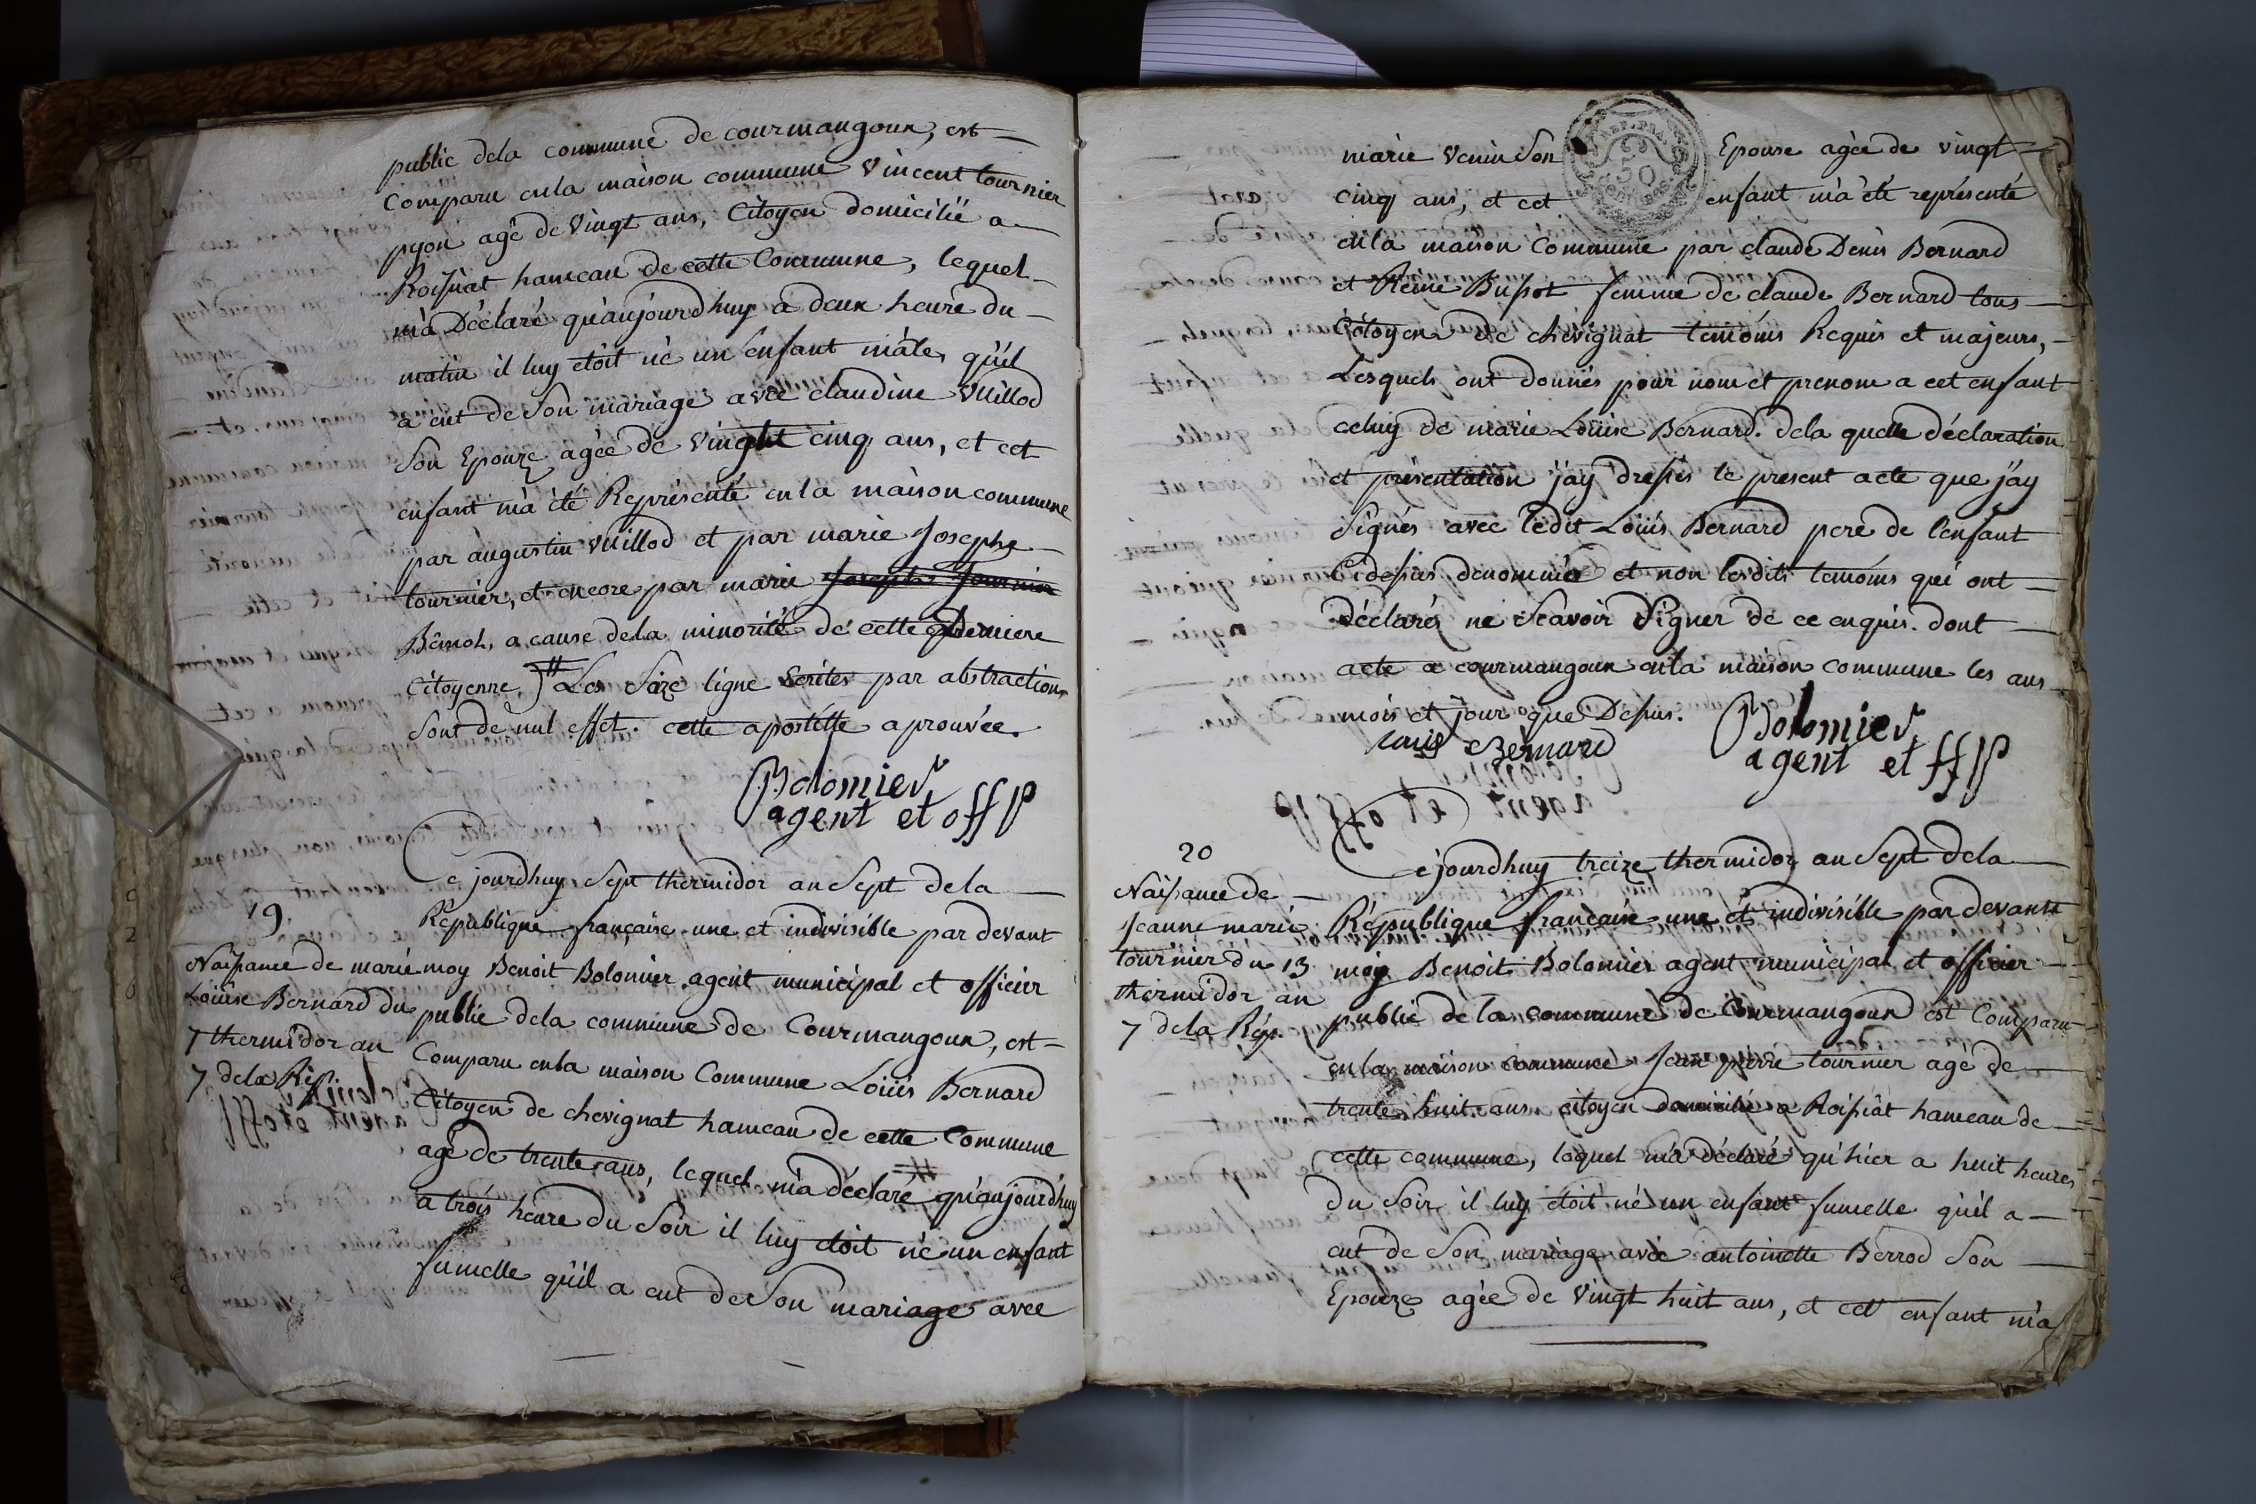 public dela commune de courmangoux, est
Comparu enla maison commune Vincent tournier
pyon agé de Vingt ans, Citoyen domicilié a
Roissiat hameau de cette Commune, lequel
m'a Déclaré qu'aujourdhuy a deux heure du
matin il luy étoit né un enfant mâle, qu'il
a eut de son mariage avec claudine Vuillod
son Epouze agée de Vinght cinq ans, et cet
enfant m'a été Représenté enla maison commune
par augustin vuillod et par marie Josephe
tournier, et encore par marie Joseph tournier
a cause dela minorité de cette Premiere
Citoyenne. Les Saize ligne Ecrites par abstraction
sont de nul effet. cette apostille aprouvée.
Bolomier
agent et off P
Cejourdhuy Sept thermidor an Sept dela
19.
République française une et indivisible par devant
Naissance de marie
moy Benoit Bolomier agent municipal et officier
Loüise Bernard du
public dela commune de Courmangoux, est
7 thermidor an
Comparu enla maison Commune Loüis Bernard
7 dela Rép.
Citoyen de chevignat hameau de cette Commune
agé de trente ans, lequel m'a déclaré qu'aujourd'huy
a trois heure du Soir il luy étoit né un enfant
fumelle qu'il a eut de Son mariage avec
marie Venin Son Epouse agée de vingt
REP. FRA.
50
cinq ans, et cet enfant m'a été représenté
enla maison Commune par claude Denis Bernard
et Reine Bussot femme de claude Bernard tous
Citoyens de chevignat temoins Requis et majeurs,
Lesquels ont donnés pour nom et prenom a cet enfant
celuy de marie Loüise Bernard. dela quelle déclaration
et présentation j'ay dressés le present acte que j'ay
Signés avec ledit Loüis Bernard pere de l'enfant
Cidessus denommée et non lesdits temoins qui ont
déclarés ne Scavoir Signer de ce enquis. dont
acte a courmangoux enla maison commune les ans
mois et jour que Dessus.
Louis Bernard
Bolomier
agent et off P
20
Cejourdhuy treize thermidor an Sept dela
Naissance de
Jeanne marie
République française une et indivisible par devant
tournier du 13
moy Benoit Bolomier agent municipal et officier
thermidor an
public de la commune de Courmangoux est Comparu
7 dela Rép.
enla maison commune Jean pierre tournier agé de
trente huit ans citoyen domicilié a Roissiat hameau de
cette commune, lequel m'a déclaré qu'hier a huit heures
du Soir il luy étoit né un enfant fumelle qu'il a
eut de Son mariage avec antoinette Berrod Son
Epouze agée de Vingt huit ans, et cet enfant m'a